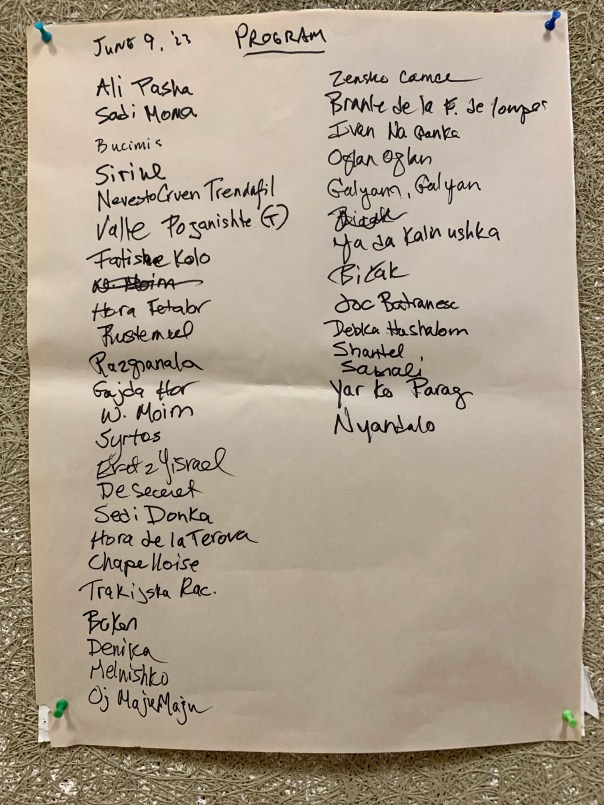 June 9, '23
PROGRAM
Ali Pasha
Sadi Moma
Bucimis
Sirine
NevestoCrven Trendafil
Valle Poganishte (T)
Fatiske Kolo
Hora Fetelor
Rustemeel
Razgranala
Gajda Hor
W. Moirn
Syrtos
Eretz Yisrael
De Secerat
Sedi Donka
Hora de la Terova
Chapelloise
Trakijska Rac.
Boken
Denjka
Melnishko
Oj MajuMaju
Zensko Camce
Branle de la F. de lomper
Ivan Na Danka
Oglan Oglan
Galyam, Galyan
Ya da Kalin ushka
Bicak
Joc Batranesc
Debka Hashalom
Shantel
Samali
Yar ko Parag
Nyandalo